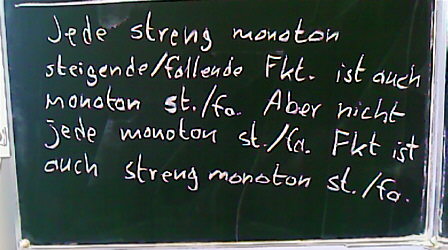 Jede streng monoton
steigende/fallende Fkt. ist auch
monoton st./fa. Aber nicht
jede monoton st./fa. Fkt ist
auch streng monoton st./fa.